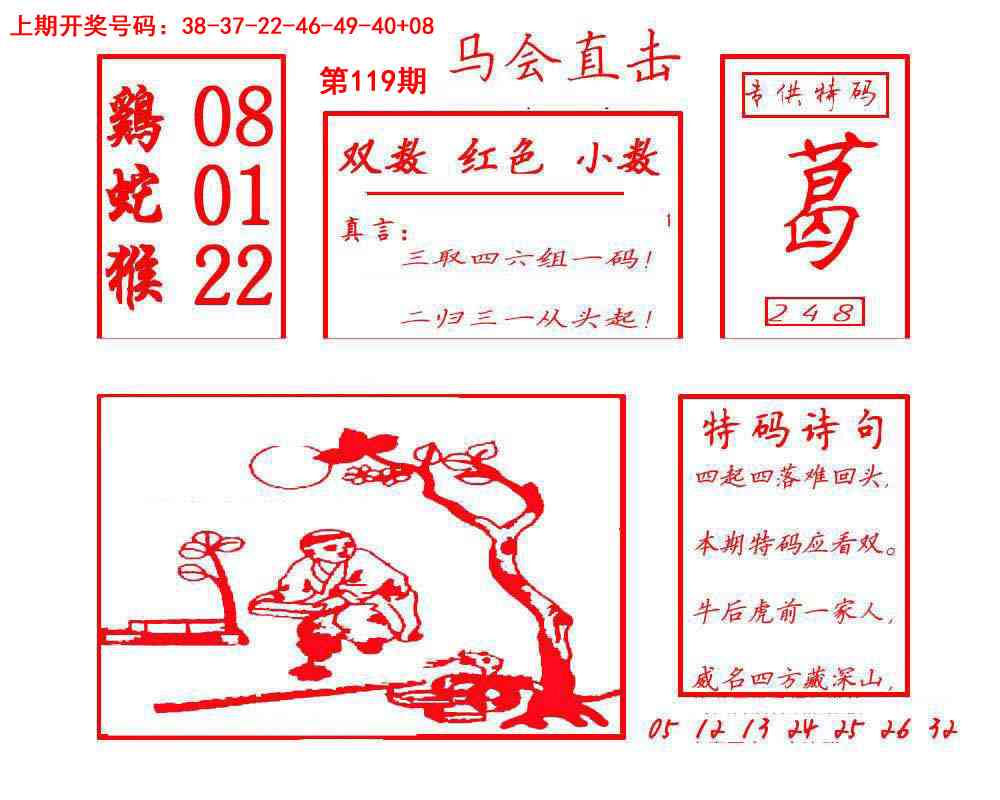 上期开奖号码：38-37-22-46-49-40+08
第119期
马会直击
鷄 08
蛇 01
猴 22
双数 红色 小数
真言：
1
三取四六组一码！
二归三一从头起！
专供特码
葛
248
特码诗句
四起四落难回头，
本期特码应看双。
牛后虎前一家人，
威名四方藏深山，
05 12 13 24 25 26 32